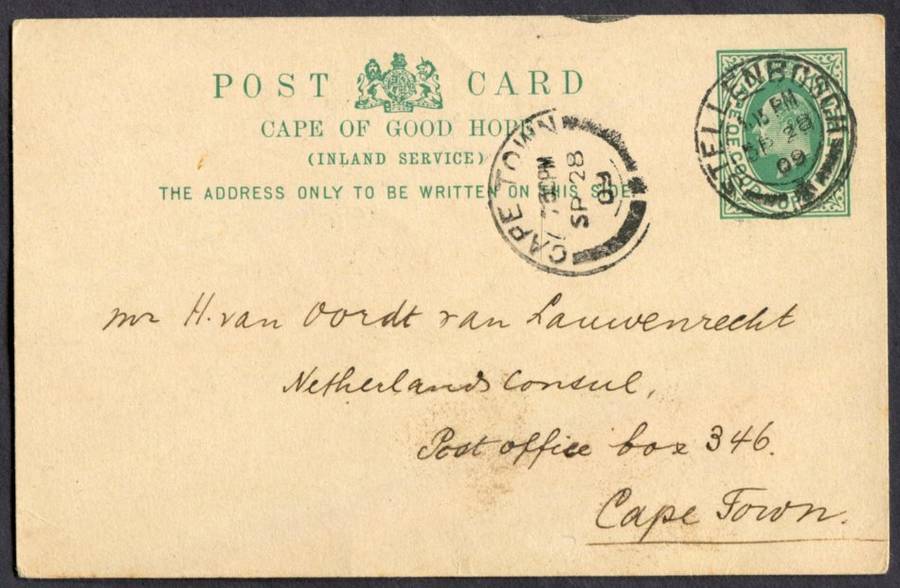 POST CARD
CAPE OF GOOD HOPE
(INLAND SERVICE)
THE ADDRESS ONLY TO BE WRITTEN ON THIS SIDE
STELLENBOSCH
PM
SP 28
09
CAPE TOWN
PM
SP 28
09
Mr H. van Oordt van Lauwenrecht
Netherlands Consul,
Post office box 346.
Cape Town.